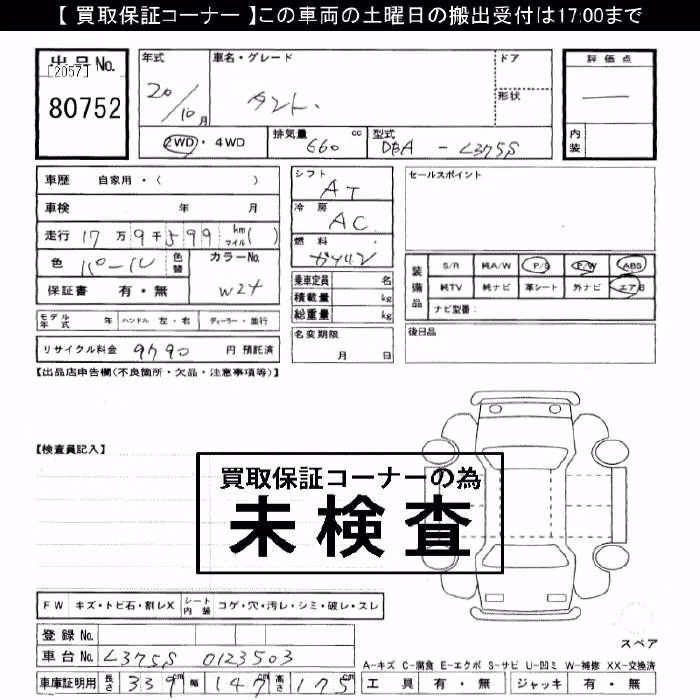 【 買取保証コーナー 】この車両の土曜日の搬出受付は17:00まで
出品No.
[2057]
80752
年式
20/10月
車名・グレード
タント.
ドア
形状
評価点
—
内装
2WD・4WD
排気量 660 cc
型式 DBA - L375S
車歴 自家用・( )
車検 年 月
走行 17万9千599 km マイル( )
色 パール 色替
カラーNo. W24
保証書 有・無
モデル年式 年 ハンドル 左・右 ディーラー・並行
リサイクル料金 9790 円 預託済
シフト AT
冷房 AC
燃料 ガソリン
乗車定員 名
積載量 kg
総重量 kg
名変期限
月 日
セールスポイント
装備品
S/R 純A/W P/S P/W ABS
純TV 純ナビ 革シート 外ナビ エアB
ナビ型番:
後日品
【出品店申告欄(不良箇所・欠品・注意事項等)】
【検査員記入】
買取保証コーナーの為
未検査
FW キズ・トビ石・割レX シート内装 コゲ・穴・汚レ・シミ・破レ・スレ
登録No.
車台No. L375S 0123503
車庫証明用 長さ 339cm 幅 147cm 高さ 175cm
スペア
A-キズ C-腐食 E-エクボ S-サビ U-凹ミ W-補修 XX-交換済
工具 有・無 ジャッキ 有・無